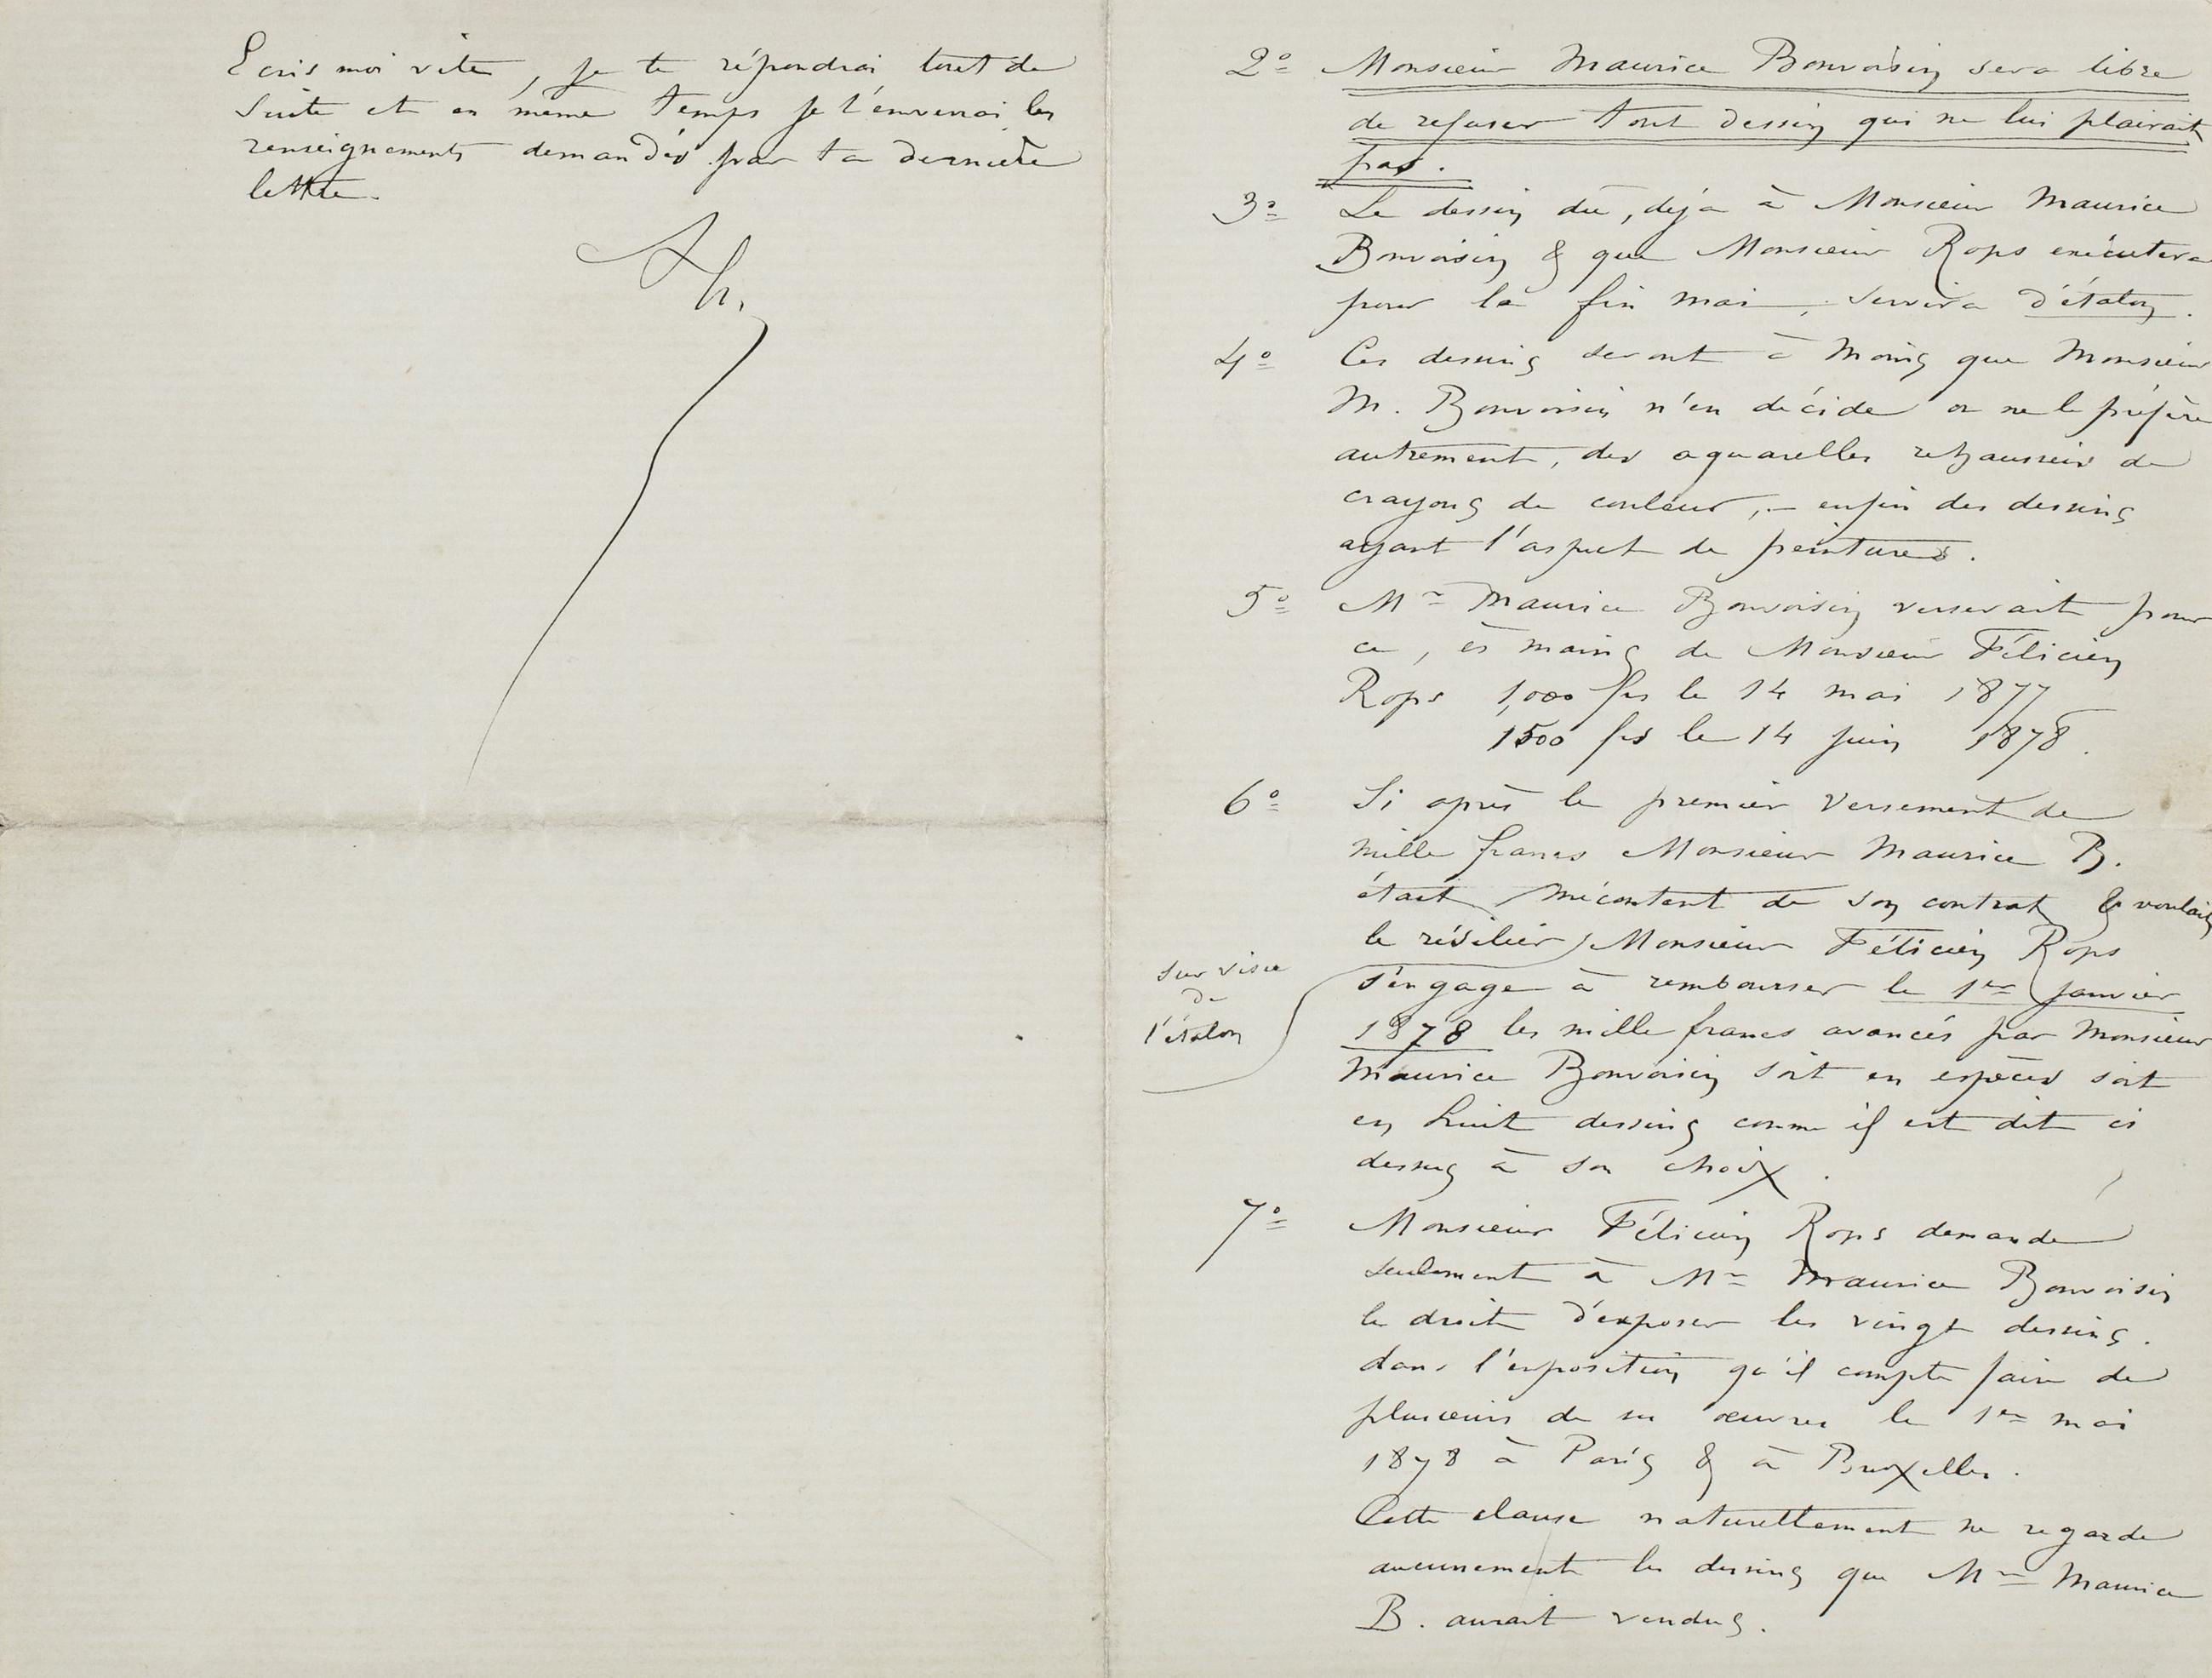 Ecris moi vite, je te répondrai tout de
suite et en même temps je t'enverrai les
renseignements demandés par ta dernière
lettre.
2º Monsieur Maurice Bonvoisin sera libre
de refuser tout dessin qui ne lui plairait
pas.
3º Le dessin dû, déjà à Monsieur Maurice
Bonvoisin & que Monsieur Rops exécutera
pour la fin mai, servira d'étalon.
4º Ces dessins seront à moins que Monsieur
M. Bonvoisin n'en décide ou ne le préfère
autrement, des aquarelles rehaussées de
crayons de couleur, – enfin des dessins
ayant l'aspect de peintures.
5º Mr Maurice Bonvoisin verserait pour
ce, ès mains de Monsieur Félicien
Rops 1,000 frs le 14 mai 1877
1500 frs le 14 juin 1878.
6º Si après le premier versement de
mille francs Monsieur Maurice B.
était mécontent de son contrat & voulait
le résilier, Monsieur Félicien Rops
s'engage à rembourser le 1er janvier
1878 les mille francs avancés par Monsieur
Maurice Bonvoisin soit en espèces soit
en huit dessins comme il est dit ci
dessus à son choix.
sur visu
de
l'étalon
7º Monsieur Félicien Rops demande
seulement à Mr Maurice Bonvoisin
le droit d'exposer les vingt dessins.
dans l'exposition qu'il compte faire de
plusieurs de ses œuvres le 1er mai
1878 à Paris & à Bruxelles.
Cette clause naturellement ne regarde
aucunement les dessins que Mr Maurice
B. aurait vendus.